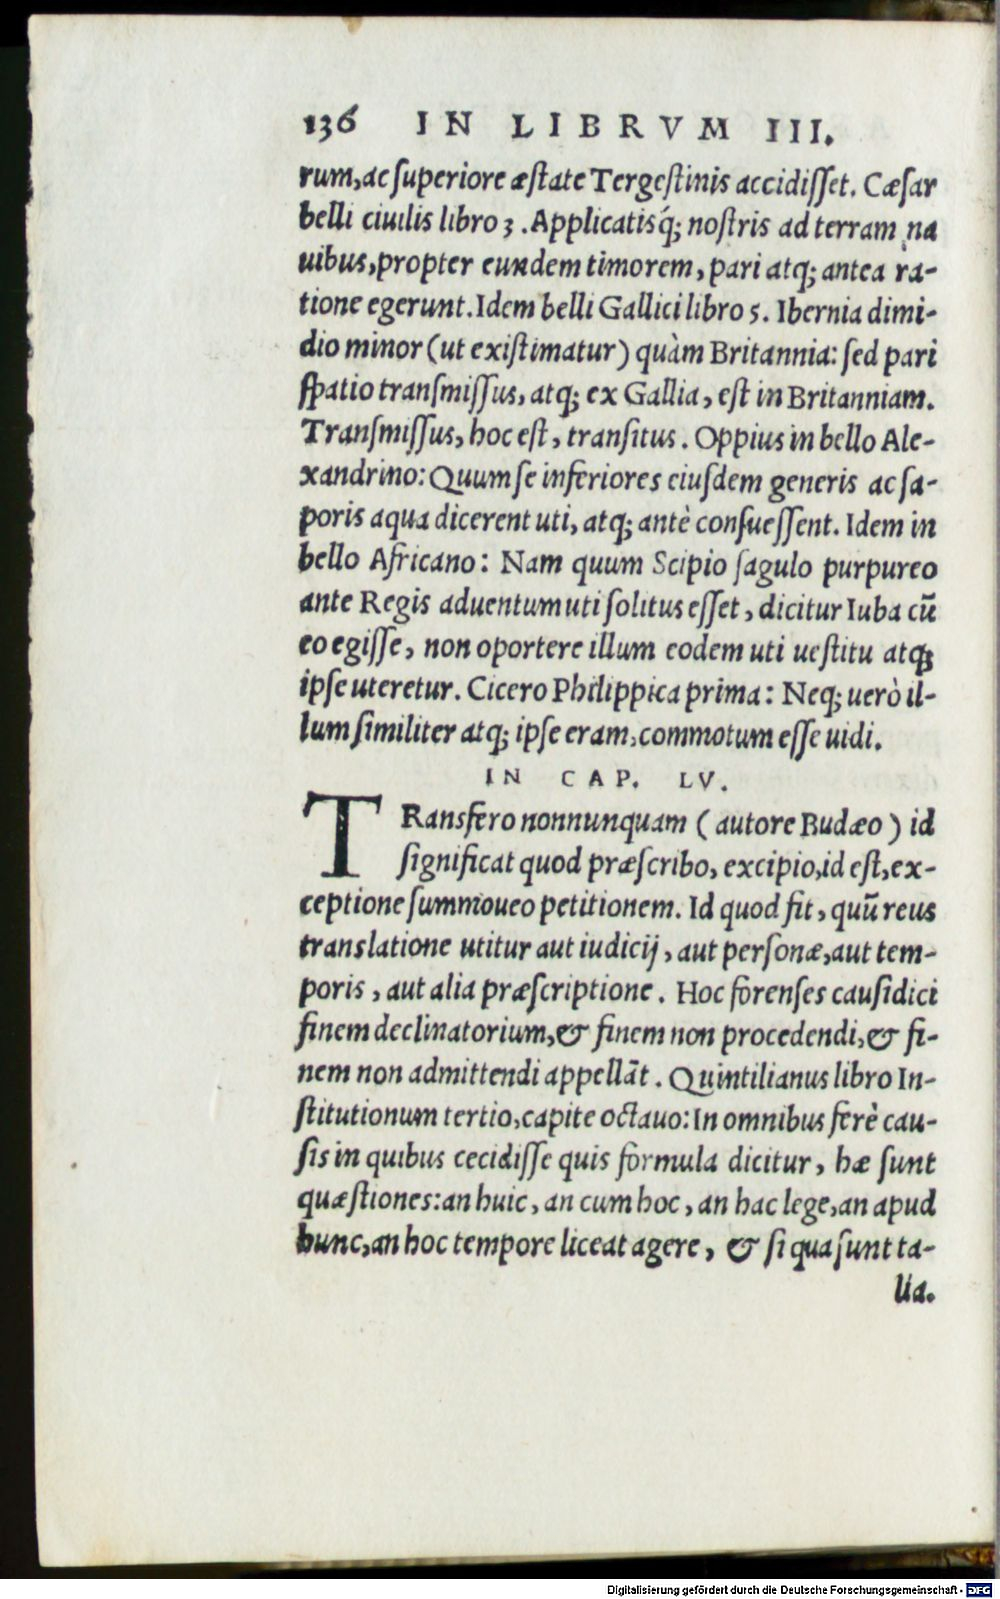 136 IN LIBRVM III.
rum, ac ſuperiore æſtate Tergeſtinis accidiſſet. Cæſar
belli ciuilis libro 3. Applicatisq́; noſtris ad terram na
uibus, propter eundem timorem, pari atq; antea ra-
tione egerunt. Idem belli Gallici libro 5. Ibernia dimi-
dio minor (ut exiſtimatur) quàm Britannia: ſed pari
ſpatio tranſmiſſus, atq; ex Gallia, eſt in Britanniam.
Tranſmiſſus, hoc eſt, tranſitus. Oppius in bello Ale-
xandrino: Quum ſe inferiores eiuſdem generis ac ſa-
poris aqua dicerent uti, atq; antè conſueſſent. Idem in
bello Africano: Nam quum Scipio ſagulo purpureo
ante Regis aduentum uti ſolitus eſſet, dicitur Iuba cū
eo egiſſe, non oportere illum eodem uti ueſtitu atq;
ipſe uteretur. Cicero Philippica prima: Neq; uerò il-
lum ſimiliter atq; ipſe eram, commotum eſſe uidi.
IN CAP. LV.
TRansfero nonnunquam (autore Budæo) id
ſignificat quod præſcribo, excipio, id eſt, ex-
ceptione ſummoueo petitionem. Id quod fit, quū reus
translatione utitur aut iudicij, aut perſonæ, aut tem-
poris, aut alia præſcriptione. Hoc forenſes cauſidici
finem declinatorium, & finem non procedendi, & fi-
nem non admittendi appellāt. Quintilianus libro In-
ſtitutionum tertio, capite octauo: In omnibus ferè cau-
ſis in quibus cecidiſſe quis formula dicitur, hæ ſunt
quæſtiones: an huic, an cum hoc, an hac lege, an apud
hunc, an hoc tempore liceat agere, & ſi qua ſunt ta-
lia.
Digitalisierung gefördert durch die Deutsche Forschungsgemeinschaft - DFG